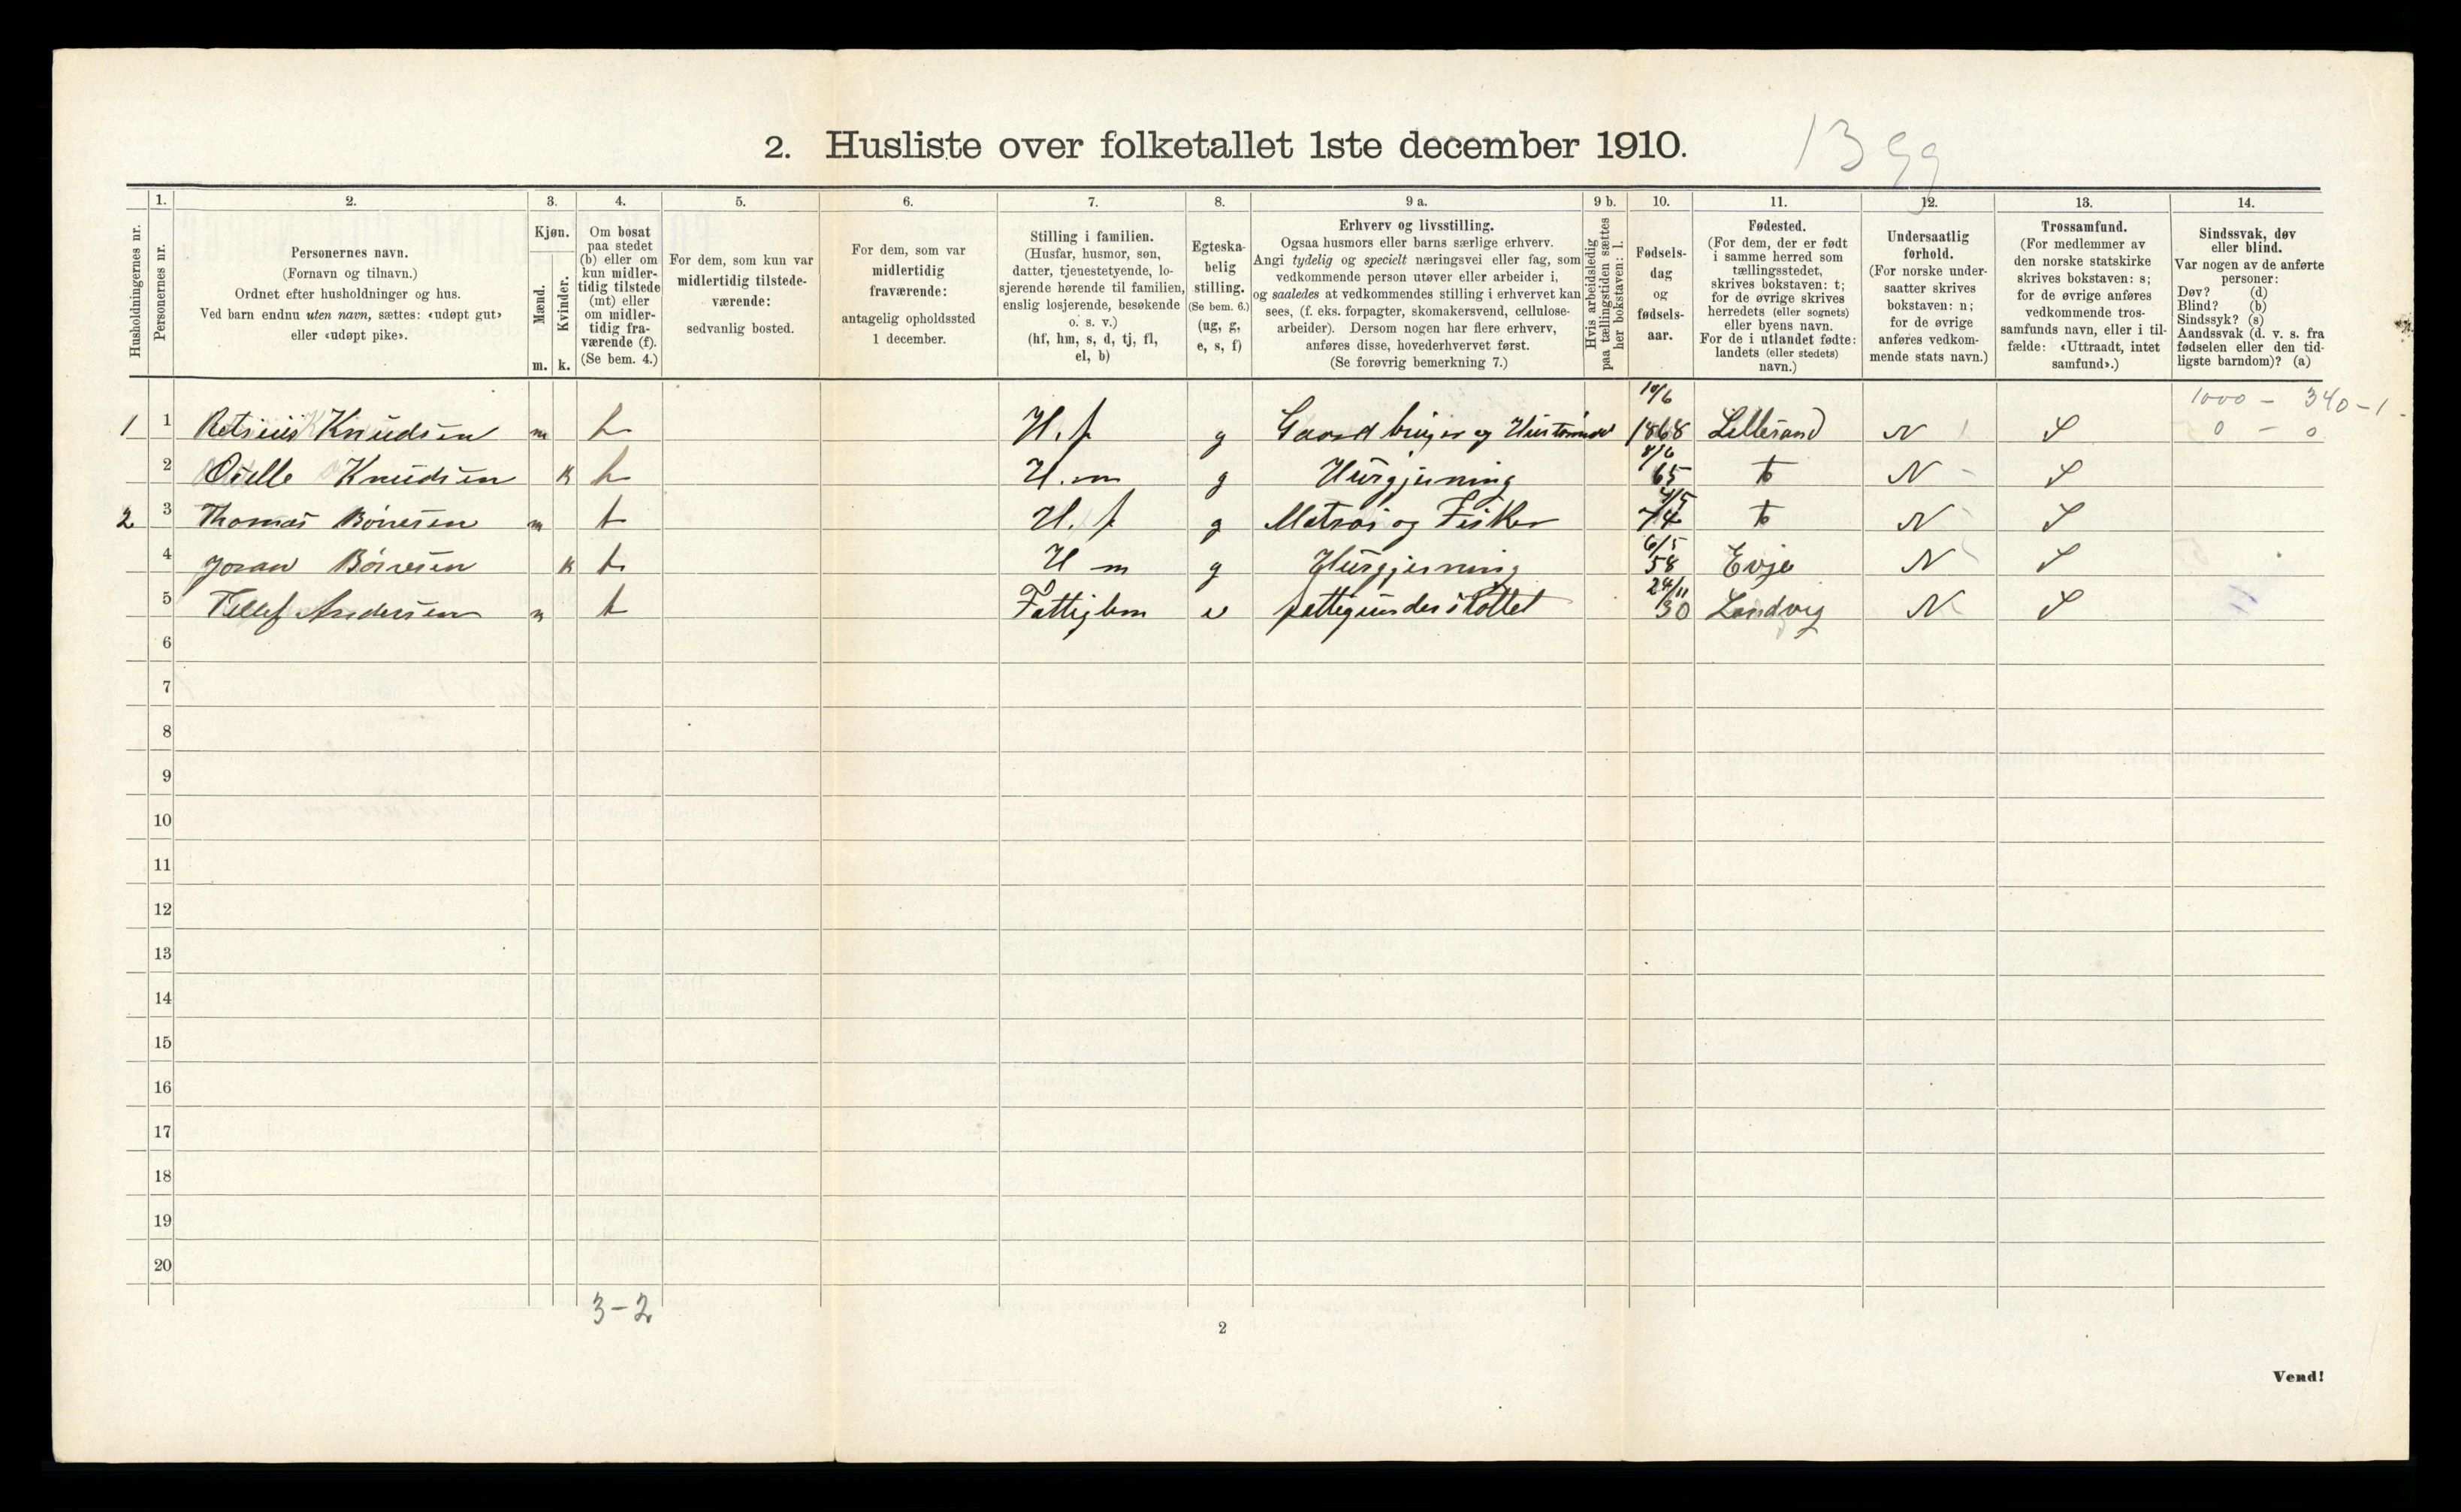 2. Husliste over folketallet 1ste december 1910.
1399
1. 2. 3. 4. 5. 6. 7. 8. 9 a. 9 b. 10. 11. 12. 13. 14.
Husholdningernes nr.
Personernes nr.
Personernes navn.
(Fornavn og tilnavn.)
Ordnet efter husholdninger og hus.
Ved barn endnu uten navn, sættes: «udøpt gut»
eller «udøpt pike».
Kjøn.
Mænd.
Kvinder.
m. k.
Om bosat
paa stedet
(b) eller om
kun midler-
tidig tilstede
(mt) eller
om midler-
tidig fra-
værende (f).
(Se bem. 4.)
For dem, som kun var
midlertidig tilstede-
værende:
sedvanlig bosted.
For dem, som var
midlertidig
fraværende:
antagelig opholdssted
1 december.
Stilling i familien.
(Husfar, husmor, søn,
datter, tjenestetyende, lo-
sjerende hørende til familien,
enslig losjerende, besøkende
o. s. v.)
(hf, hm, s, d, tj, fl,
el, b)
Egteska-
belig
stilling.
(Se bem. 6.)
(ug, g,
e, s, f)
Erhverv og livsstilling.
Ogsaa husmors eller barns særlige erhverv.
Angi tydelig og specielt næringsvei eller fag, som
vedkommende person utøver eller arbeider i,
og saaledes at vedkommendes stilling i erhvervet kan
sees, (f. eks. forpagter, skomakersvend, cellulose-
arbeider). Dersom nogen har flere erhverv,
anføres disse, hovederhvervet først.
(Se forøvrig bemerkning 7.)
Hvis arbeidsledig
paa tællingstiden sættes
her bokstaven: l.
Fødsels-
dag
og
fødsels-
aar.
Fødested.
(For dem, der er født
i samme herred som
tællingsstedet,
skrives bokstaven: t;
for de øvrige skrives
herredets (eller sognets)
eller byens navn.
For de i utlandet fødte:
landets (eller stedets)
navn.)
Undersaatlig
forhold.
(For norske under-
saatter skrives
bokstaven: n;
for de øvrige
anføres vedkom-
mende stats navn.)
Trossamfund.
(For medlemmer av
den norske statskirke
skrives bokstaven: s;
for de øvrige anføres
vedkommende tros-
samfunds navn, eller i til-
fælde: «Uttraadt, intet
samfund».)
Sindssvak, døv
eller blind.
Var nogen av de anførte
personer:
Døv? (d)
Blind? (b)
Sindssyk? (s)
Aandssvak (d. v. s. fra
fødselen eller den tid-
ligste barndom)? (a)
1000 - 340-1
1 1 Knudsen m b H.f g Gaardbruger og 1868 Lillesand N S 0 - 0
2 Knudsen k b H.m g Husgjerning 8/6 65 t N S
2 3 Thomas Børresen m b H.f g Matros og Fisker 4/5 74 t N S
4 Joran Børresen k b H m g Husgjerning 6/5 58 Evje N S
5 Tellef Andersen m b Fattiglem e fattigunderstøttet 24/11 30 Landvig N S
6
7
8
9
10
11
12
13
14
15
16
17
18
19
20
3-2
2
Vend!